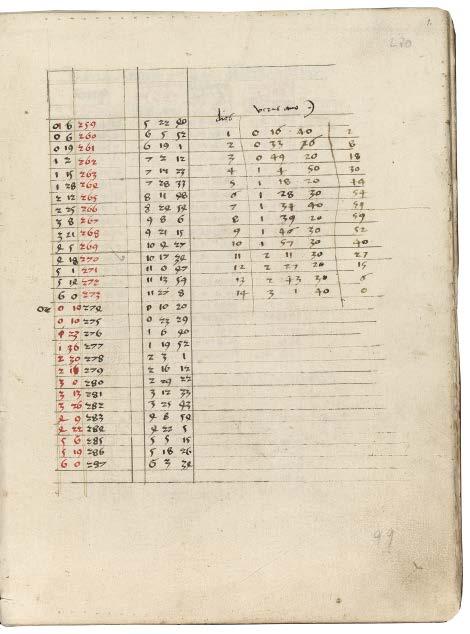 1.
270
6 259 5 22 40
0 6 260 6 5 52
0 19 261 6 19 1
1 2 262 7 2 12
1 15 263 7 23
1 28 264 7 28 33
2 12 265 8 11 48
2 25 266 8 24 58
3 8 267 9 8 6
3 21 268 9 21 15
4 5 269 10 4 27
4 18 270 10 17 34
5 1 271 11 0 47
5 14 272 11 13 54
6 0 273 11 27 8
0 274 0 10 20
0 10 275 0 23 29
23 276 1 6 40
1 36 277 1 19 52
2 278 2 3 1
2 16 279 2 16 12
3 0 280 2 29 22
3 13 281 3 12 33
3 26 282 3 25 43
4 9 283 4 8 54
4 22 284 4 22 5
5 6 285 5 5 15
5 19 286 5 18 26
6 0 287 6 3 34
dies
1 0 16 40 2
2 0 33 8
3 0 49 20 18
4 1 4 50 30
5 1 18 20 44
6 1 28 30 54
7 1 34 40 59
8 1 39 20 59
9 1 46 30 52
10 1 57 30 40
11 2 11 30 27
12 2 27 20 15
13 2 43 30 6
14 3 1 40 0
99